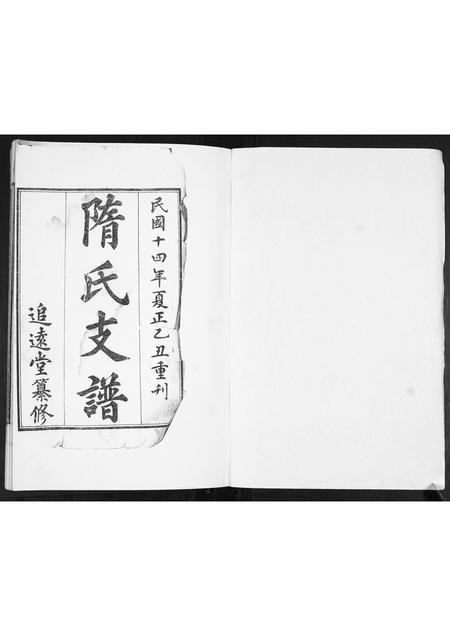 民國十四年夏正乙丑重刊
隋氏支譜
追遠堂纂修